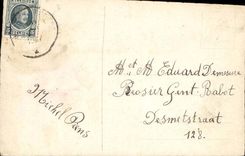 Mt M Eduard Demesure
Rosier Gent. Rabot
Desmetstraat
128.
Michel Pans